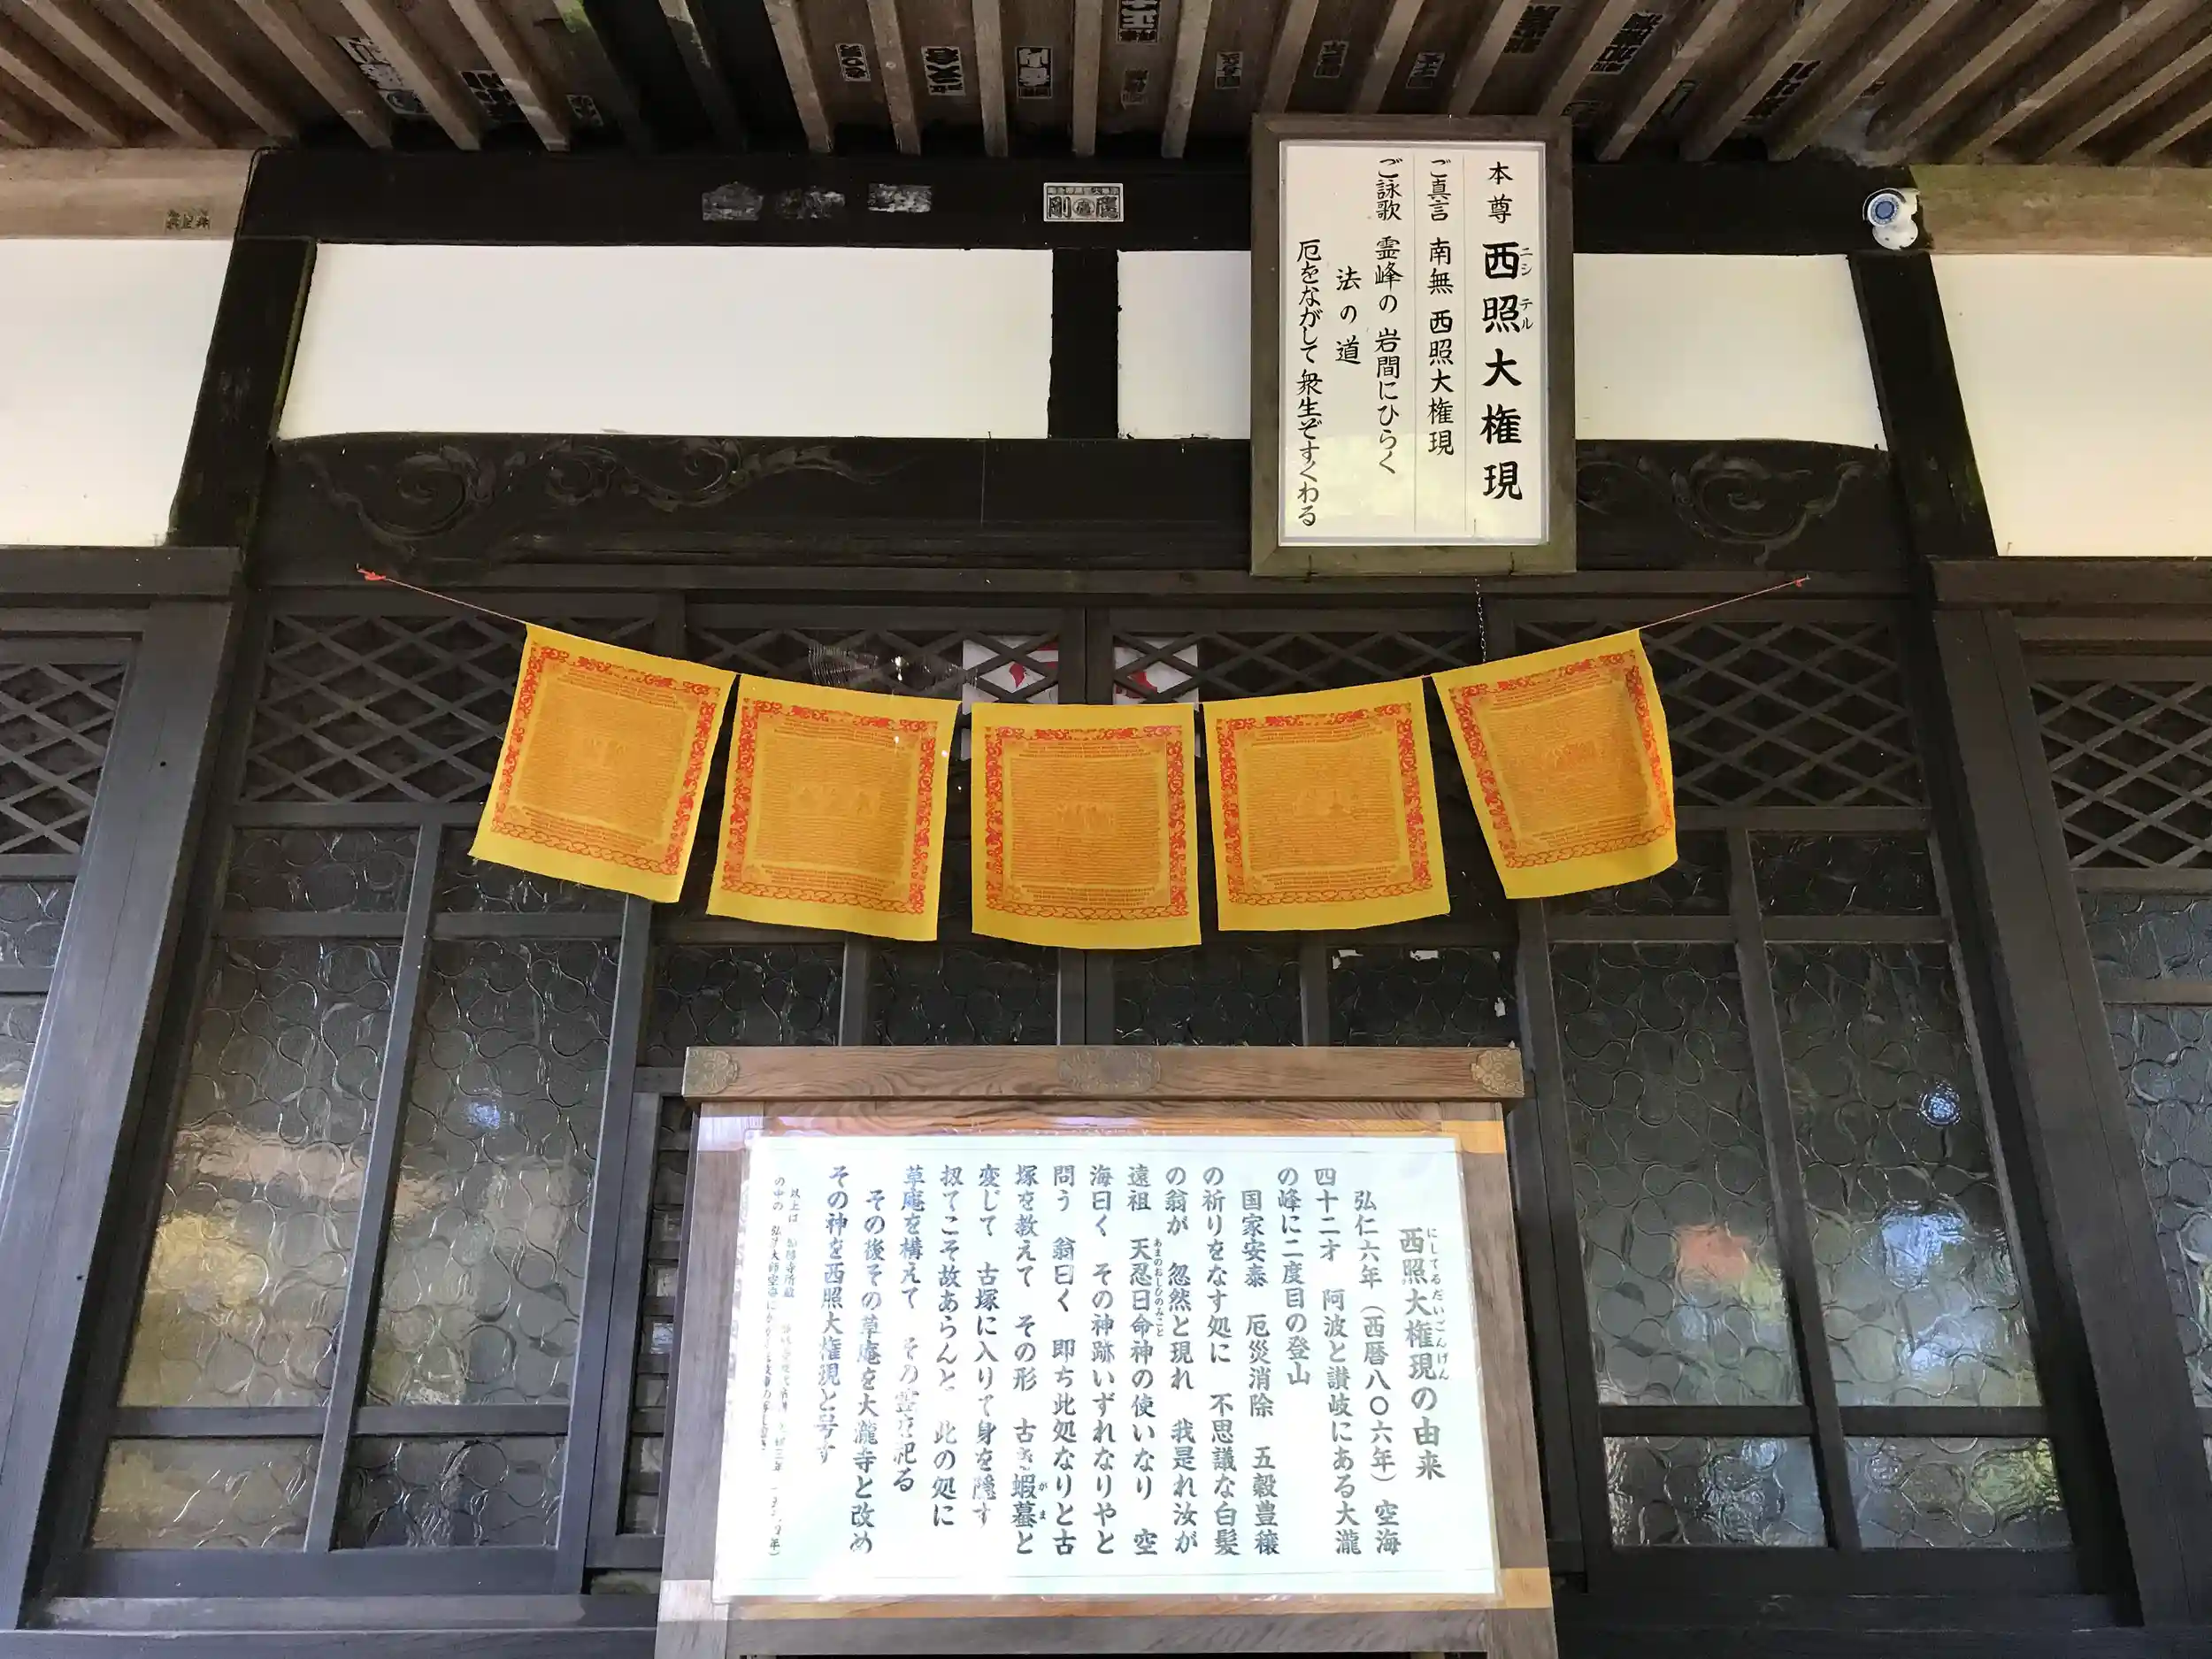 本尊 西照大権現
ニシ テル
ご真言 南無 西照大権現
ご詠歌 霊峰の 岩間にひらく
法の道
厄をながして 衆生ぞすくわる
西照大権現の由来
にしてるだいごんげん
弘仁六年（西暦八〇六年）空海
四十二才 阿波と讃岐にある大瀧
の峰に二度目の登山
国家安泰 厄災消除 五穀豊穣
の祈りをなす処に 不思議な白髪
の翁が 忽然と現れ 我是れ汝が
遠祖 天忍日命神の使いなり 空
あまのおしひのみこと
海曰く その神跡いずれなりやと
問う 翁曰く 即ち此処なりと古
塚を教えて その形 古き蝦蟇と
がま
変じて 古塚に入りて身を隠す
扨てこそ故あらんと 此の処に
草庵を構えて その霊を祀る
その後その草庵を大瀧寺と改め
その神を西照大権現と号す
以上は
の中の 弘法大師空海に